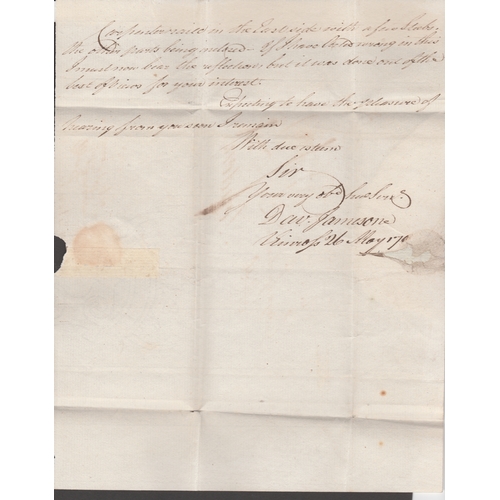 in the East side with a few Stabs,
the other parts being inclosed - If I have Acted wrong in this
I must now bear the reflection but it was done out of the
best of views for your interest.
Expecting to have the pleasure of
hearing from you soon I remain
With due esteem
Sir
Your very obt. Servt.
Dav: Jameson
26 May 17